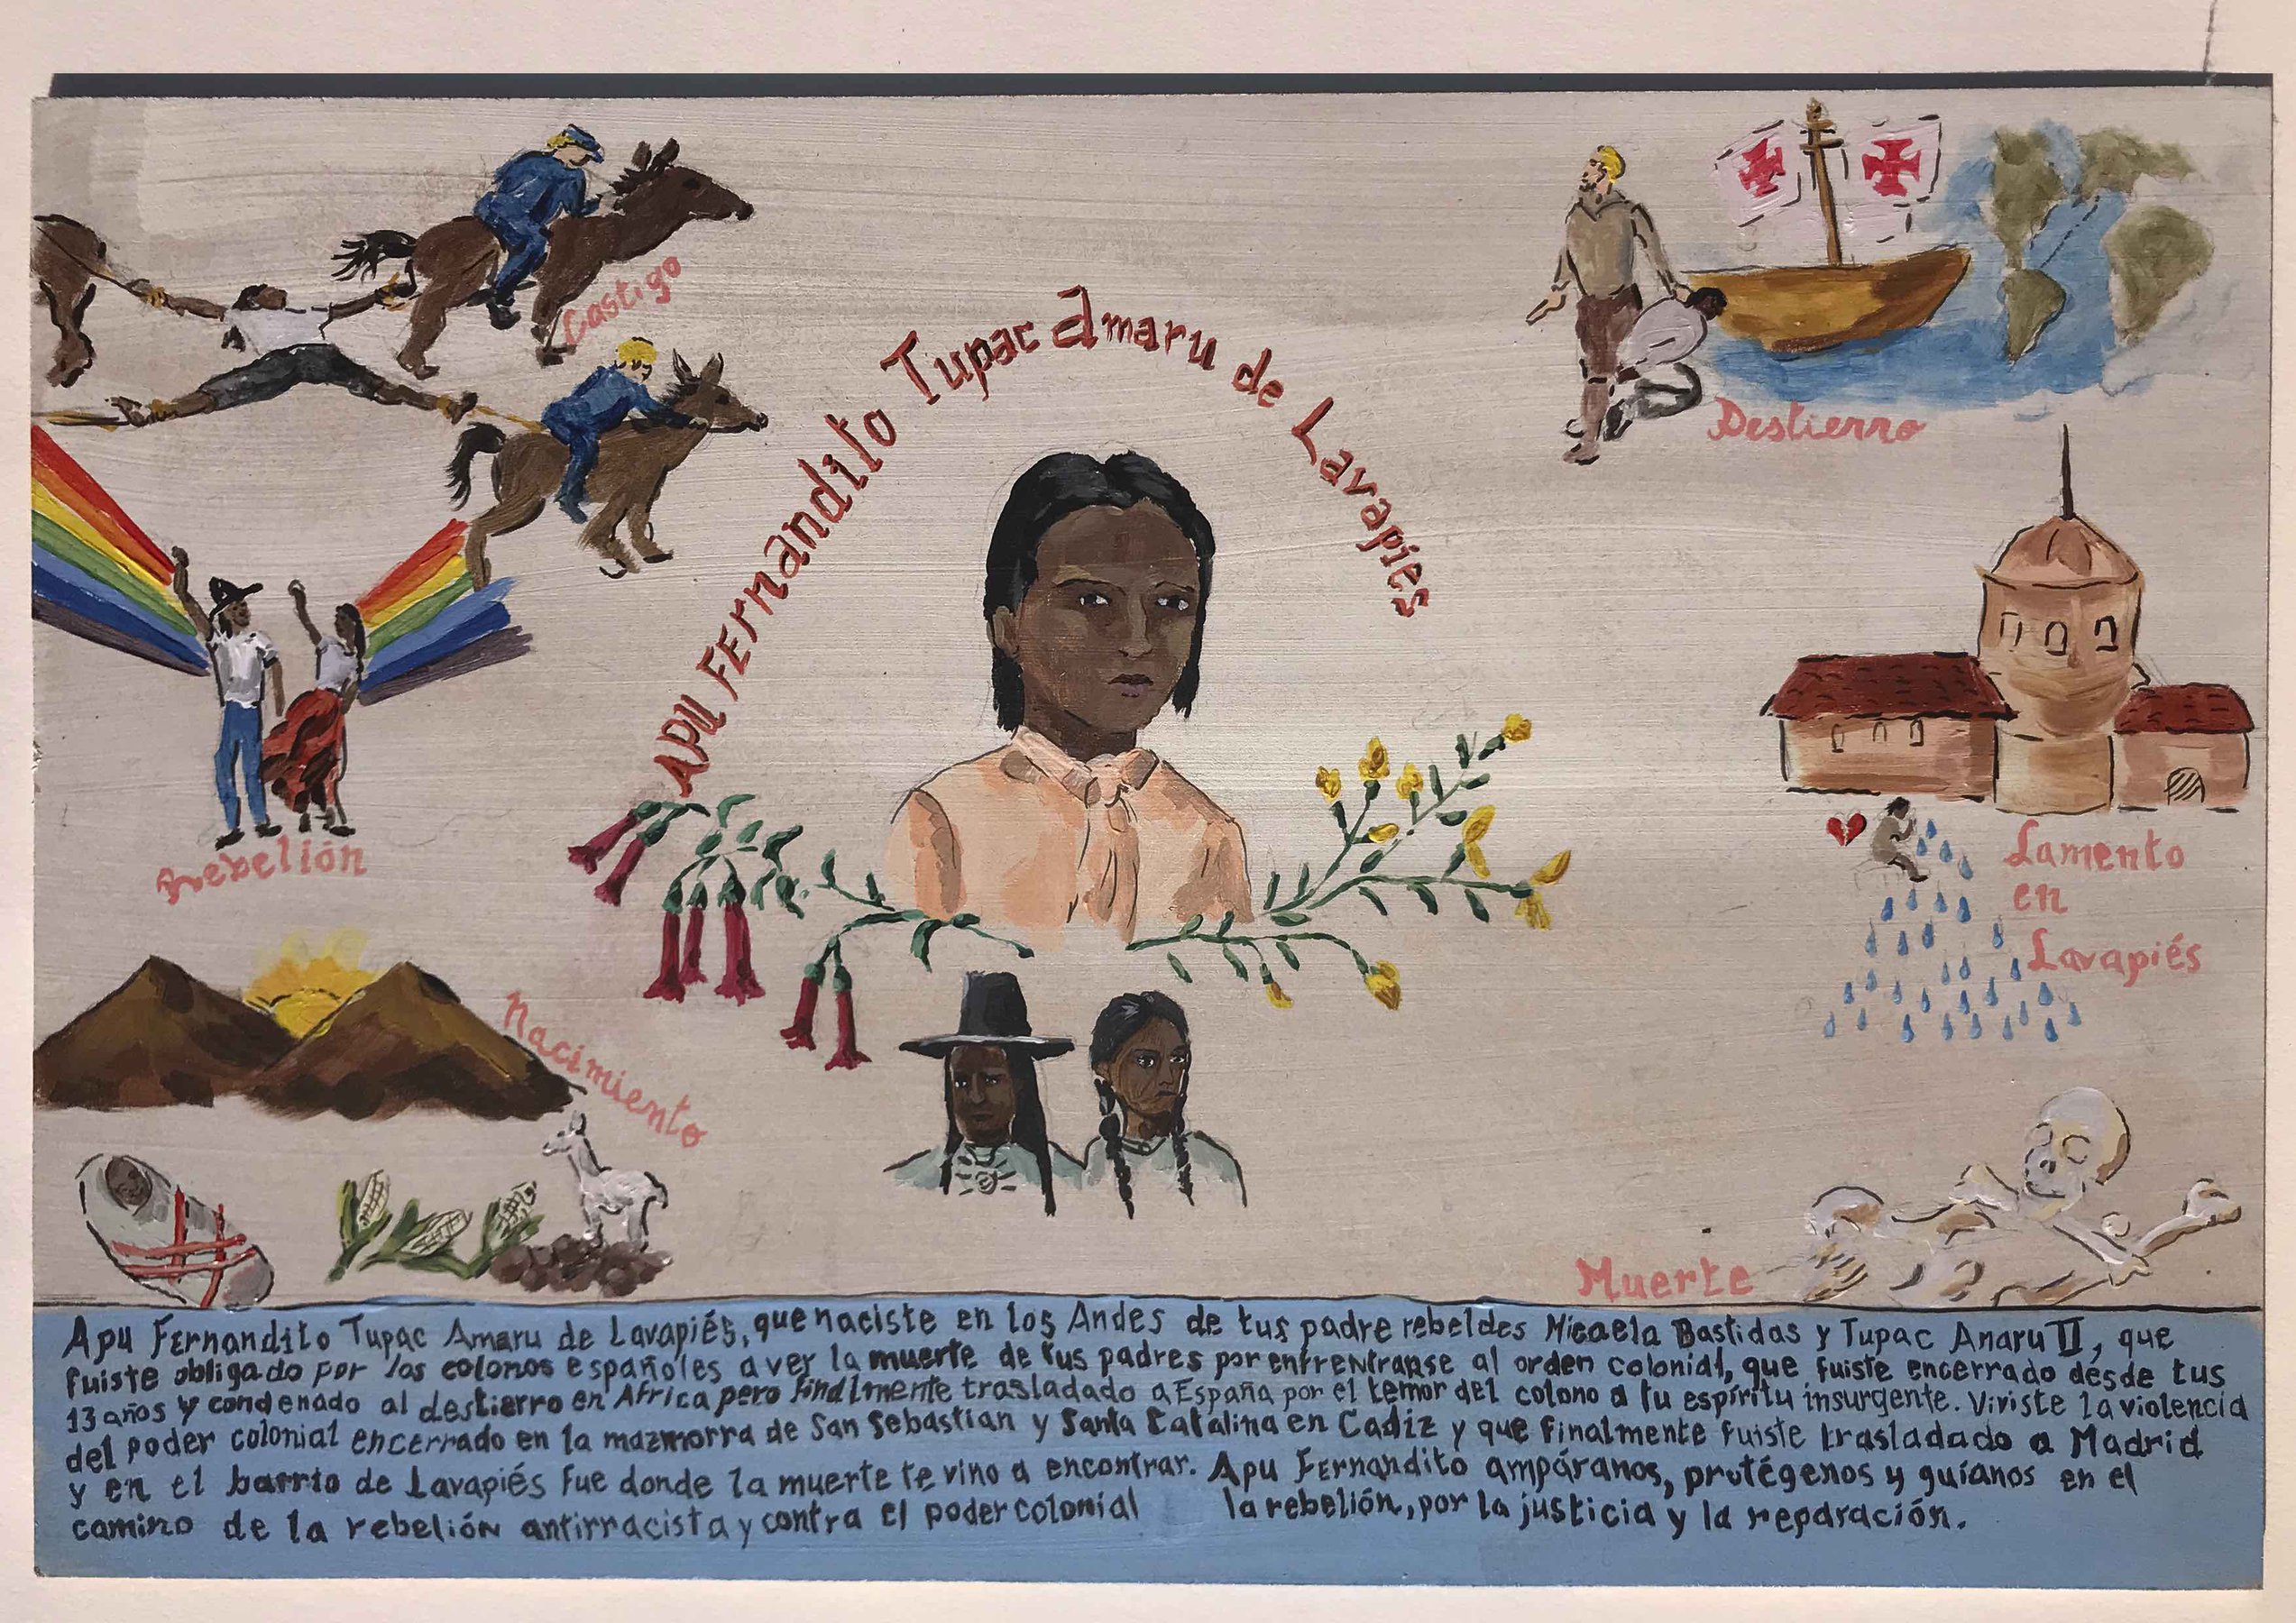 Castigo
APU FERnandito Tupac Amaru de Lavapiés
Destierro
Rebelión
Lamento
en
Lavapiés
Nacimiento
Muerte
Apu FERnandito Tupac Amaru de Lavapiés, que naciste en los Andes de tus padre rebeldes Micaela Bastidas y Tupac Anaru II, que
fuiste obligado por los colonos españoles a ver la muerte de tus padres por enfrentrarse al orden colonial, que fuiste encerrado desde tus
13 años y condenado al destierro en Africa pero finalmente trasladado a España por el temor del colono a tu espíritu insurgente. Viviste la violencia
del poder colonial encerrado en la mazmorra de San Sebastian y Santa Catalina en Cadiz y que finalmente fuiste trasladado a Madrid
y en el barrio de Lavapiés fue donde la muerte te vino a encontrar. Apu Fernandito ampáranos, protégenos y guíanos en el
camino de la rebelión antirracista y contra el poder colonial la rebelión, por la justicia y la reparación.